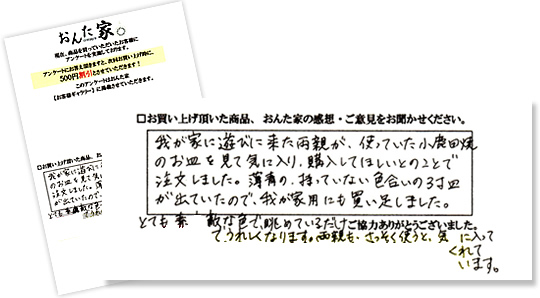 おんた家
現在、商品を買っていただいたお客様に
アンケートを実施しております。
アンケートにお答え頂きますと、次回お買い上げ時に、
500円割引とさせていただきます!
このアンケートはおんた家
【お客様ギャラリー】に掲載させていただきます。
□お買い上げ頂いた商品、お
我が家に遊びに
のお皿を見て気
注文しました。薄
が出ていたので、
とても素
□お買い上げ頂いた商品、おんた家の感想・ご意見をお聞かせください。
我が家に遊びに来た両親が、使っていた小鹿田焼
のお皿を見て気に入り、購入してほしいとのことで
注文しました。薄青の、持っていない色合いの3寸皿
が出ていたので、我が家用にも買い足しました。
とても素敵な色で、眺めているだけ
ご協力ありがとうございました。
で、うれしくなります。両親も、さっそく使うと、気に入って
くれて
います。